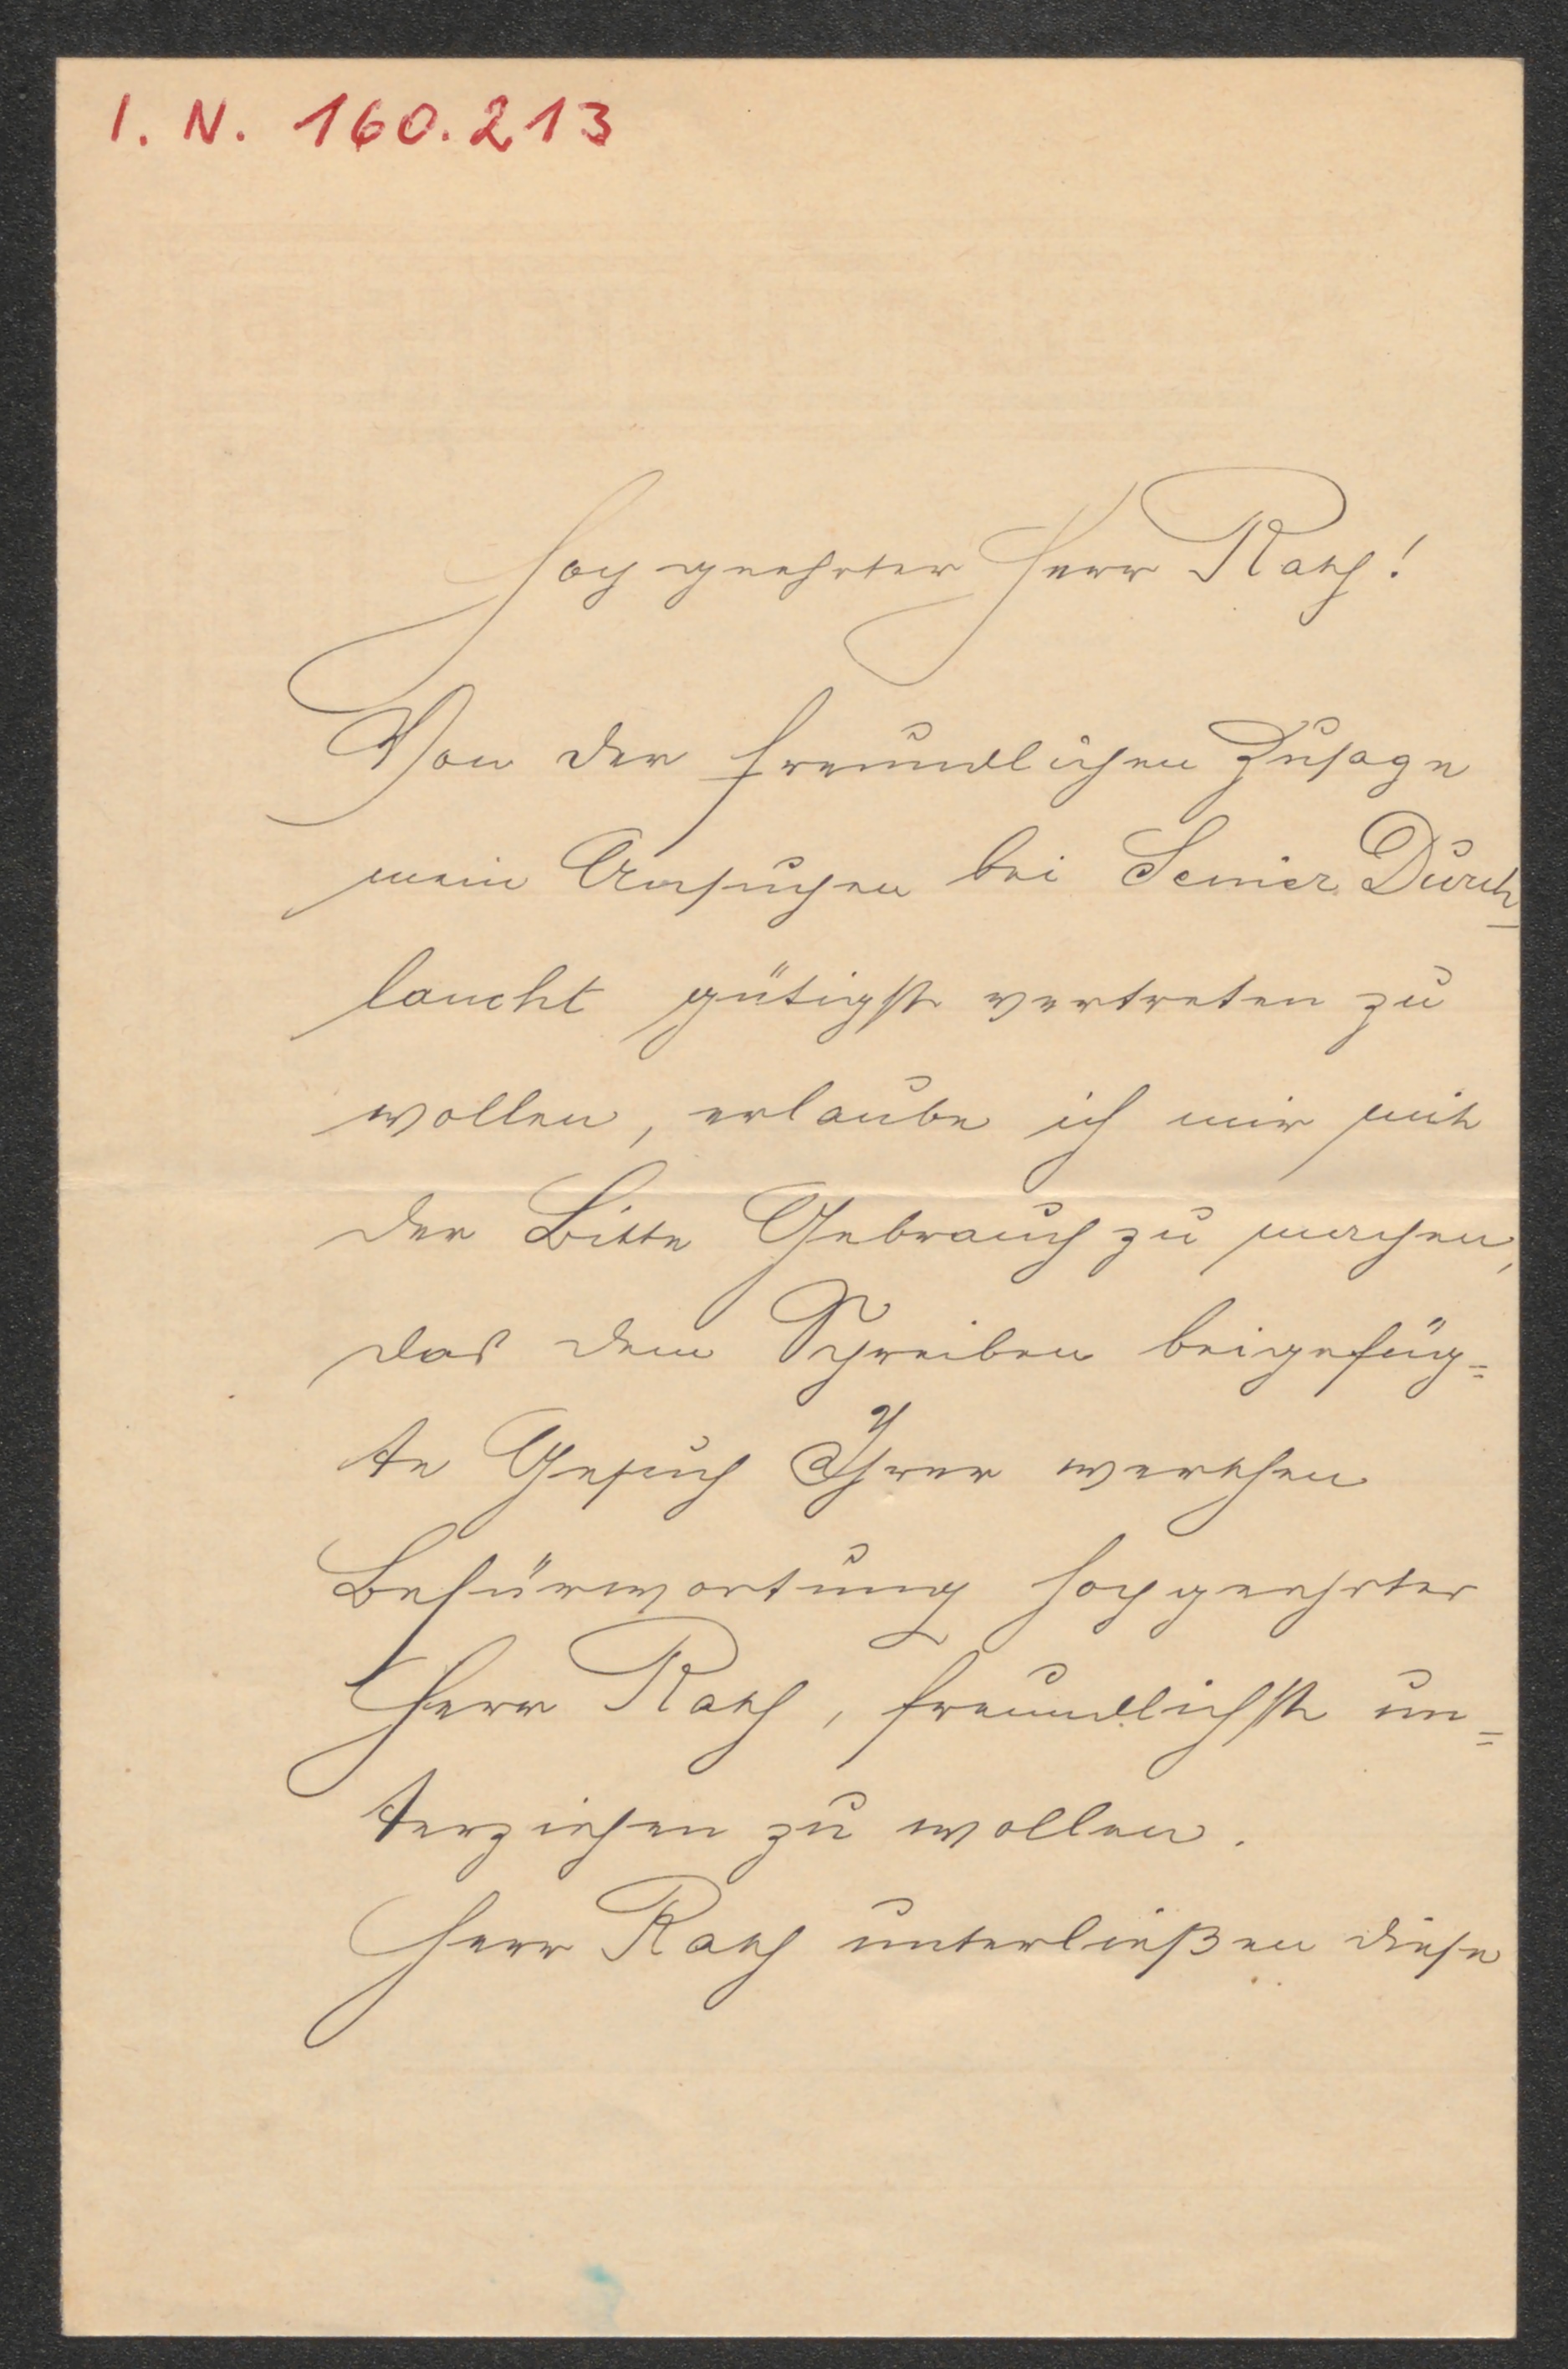 I. N. 160.213
Hochgeehrter Herr Rath!
Von der freundlichen Zusage
mein Ansuchen bei Seiner Durch-
laucht gütigst vertreten zu
wollen, erlaube ich mir mit
der Bitte Gebrauch zu machen,
das dem Schreiben beigefüg=
te Gesuch Ihrer werthen
Befürwortung hochgeehrter
Herr Rath, freundlichst un=
terziehen zu wollen.
Herr Rath unterließen diese